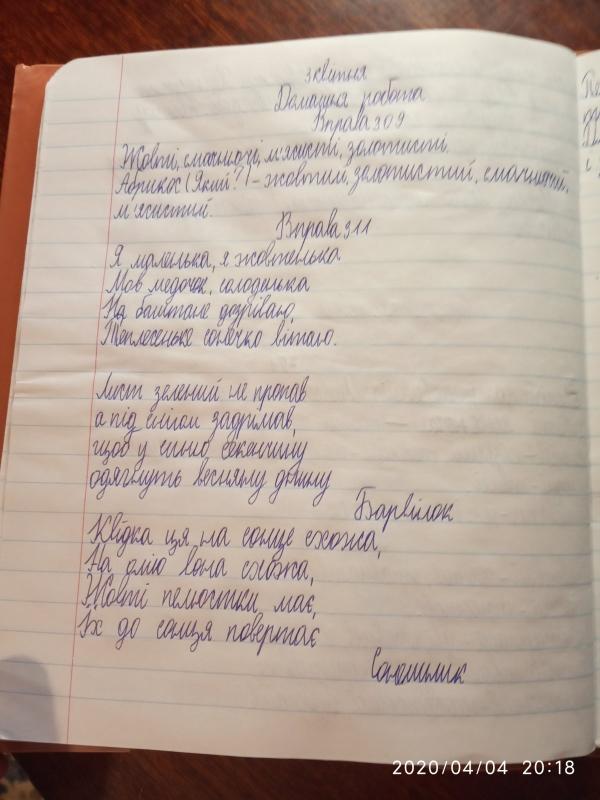 3 квітня
Домашня робота
Вправа 309
Жовті, смачнющі, м'ясисті, золотисті.
Абрикос (Який?) – жовтий, золотистий, смачнющий,
м'ясистий.
Вправа 311
Я маленька, я жовтенька
Мов медочек, солоденька
На баштане дозріваю,
Теплесеньке сонечко вітаю.
Лист зелений не пропав
а під снігом задрімав,
щоб у синю
одягнуть весняну днину
Барвінок
Квідка ця на сонце схожа,
На олію вона схожа,
Жовті пелюстки має,
Їх до сонця повертає
Соняшник
2020/04/04 20:18